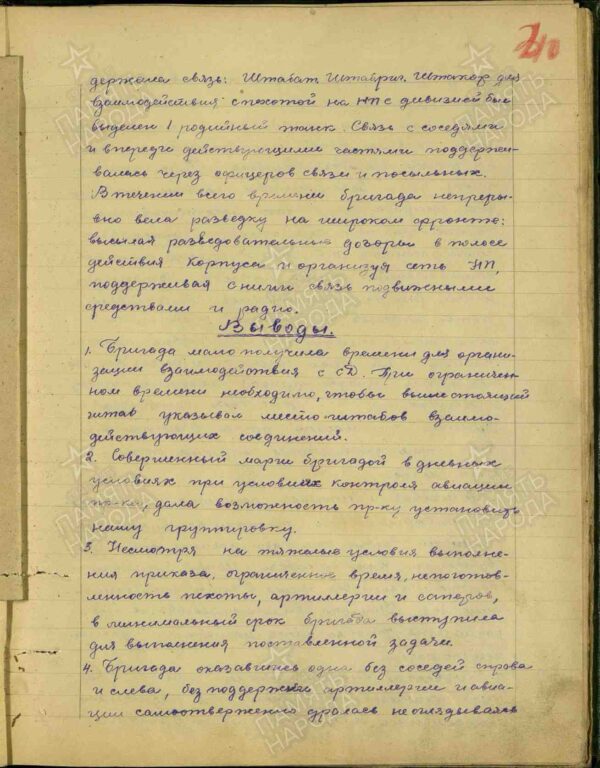 держана связь: Штабат. Штабриг. Штакор для
взаимодействия с пехотой на НП с дивизией был
выделен 1 родийный танк. Связь с соседями
и впереди действующими частями поддержи-
валась через офицеров связи и посыльных.
В течении всего времени бригада непреры-
вно вела разведку на широком фронте:
высылая разведовательные дозоры в полосе
действия корпуса и организуя сеть НП,
поддерживая с ними связь подвижными
средствами и радио.
Выводы.
1. Бригада мало получила времени для органи-
зации взаимодействия с СД. При ограничен-
ном времени необходимо, чтобы вышестоящий
штаб указывал место штабов взаимо-
действующих соединений.
2. Совершенный марш бригадой в дневных
условиях при условиях контроля авиации
пр-ка, дала возможность пр-ку установить
нашу группировку.
3. Несмотря на тяжелые условия выполне-
ния приказа, ограниченное время, непоготов-
ленность пехоты, артиллерии и саперов,
в минимальный срок бригада выступила
для выполнения поставленной задачи.
4. Бригада оказавшись одна без соседей справа
и слева, без поддержки артиллерии и авиа-
ции самоотвержено дралась не оглядываясь
ПАМЯТЬ НАРОДА
ПАМЯТЬ НАРОДА
ПАМЯТЬ НАРОДА
ПАМЯТЬ НАРОДА
ПАМЯТЬ НАРОДА
ПАМЯТЬ НАРОДА